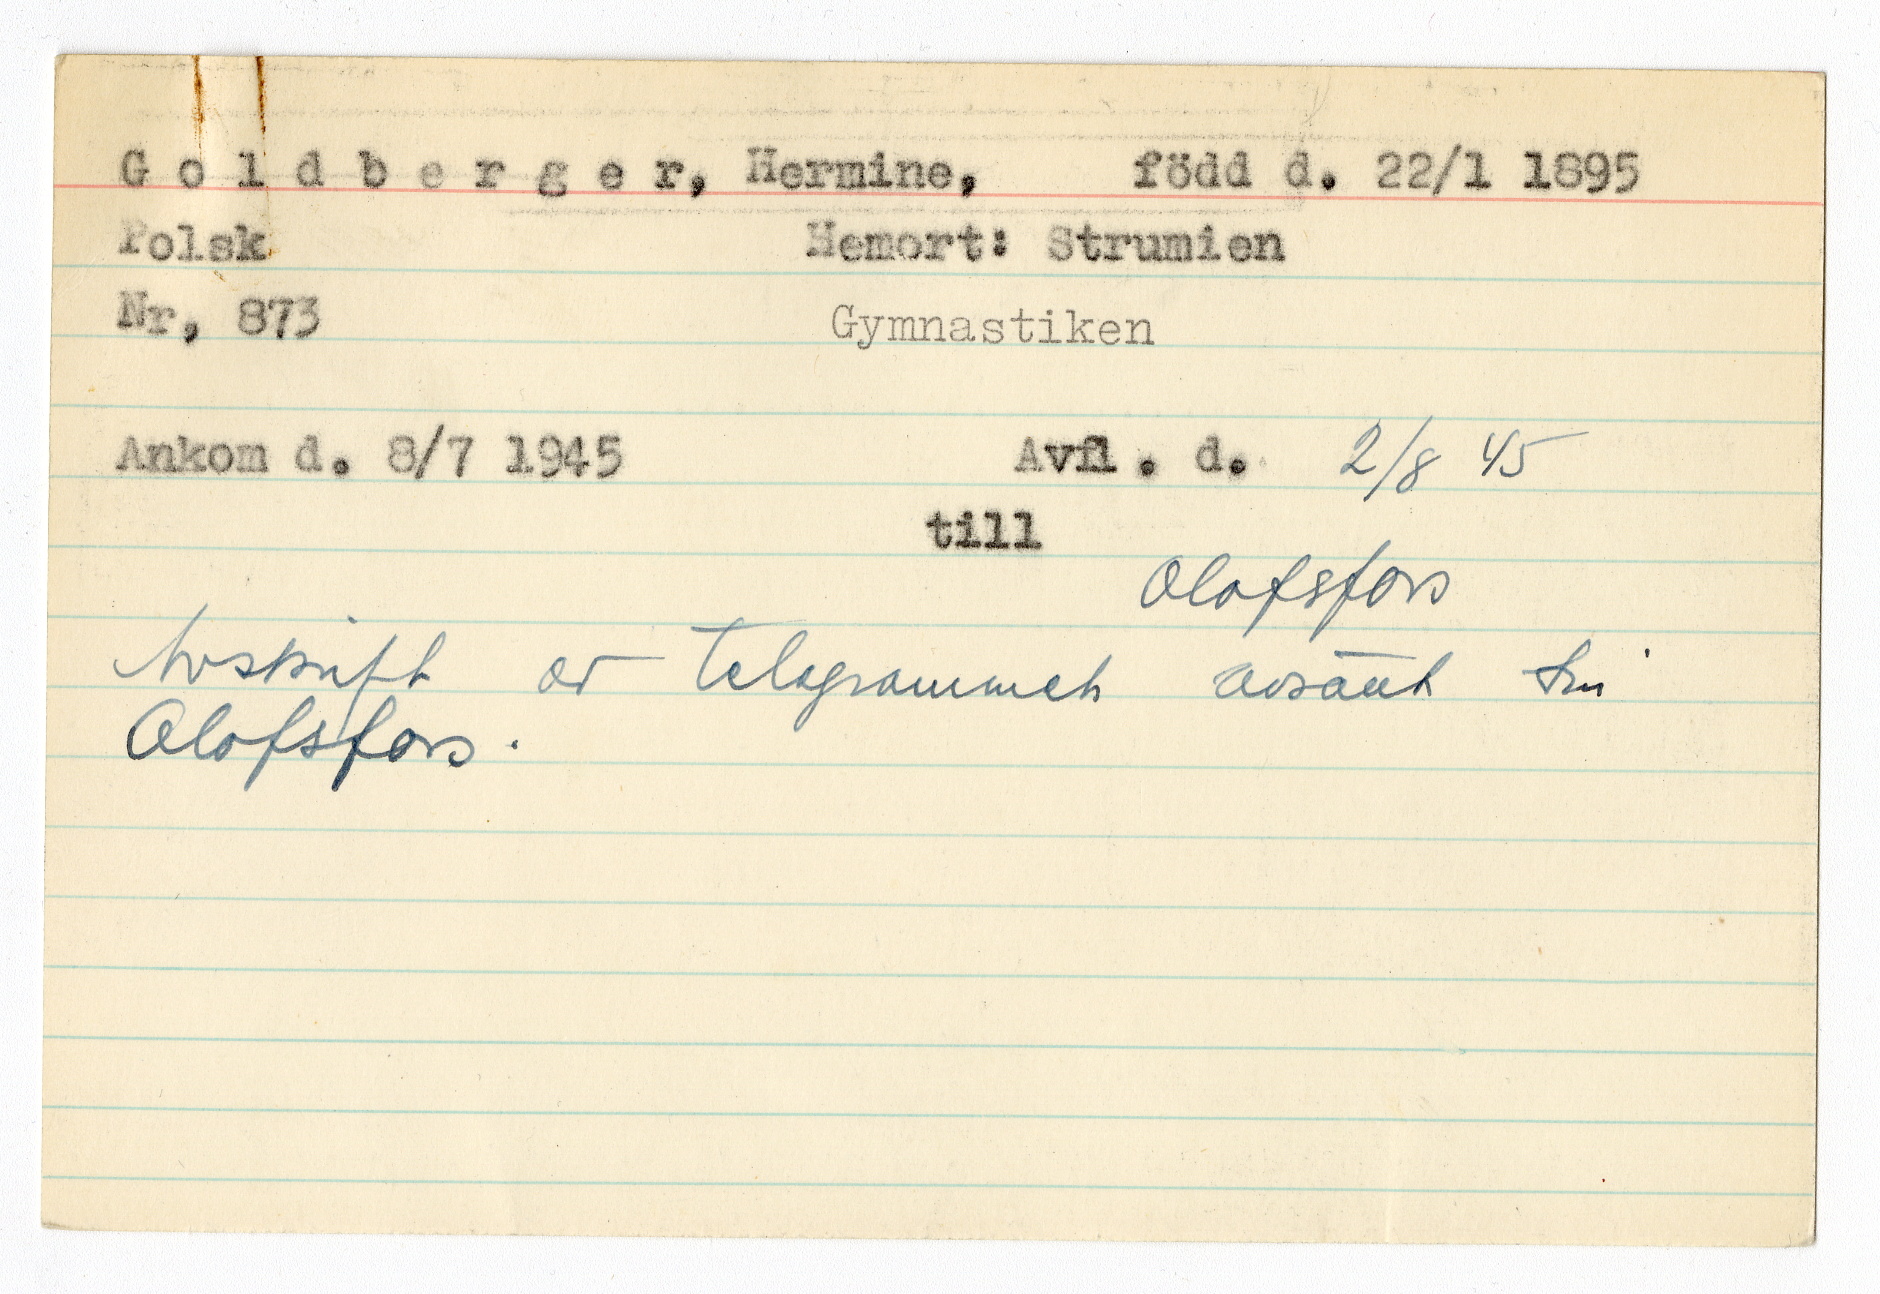 Goldberger, Hermine, född d. 22/1 1895
Polsk Hemort: Strumien
Nr, 873 Gymnastiken
Ankom d. 8/7 1945 Avfl. d. 2/8 45
till
Olofsfors
Avskrift av telegrammet avsänt till
Olofsfors.